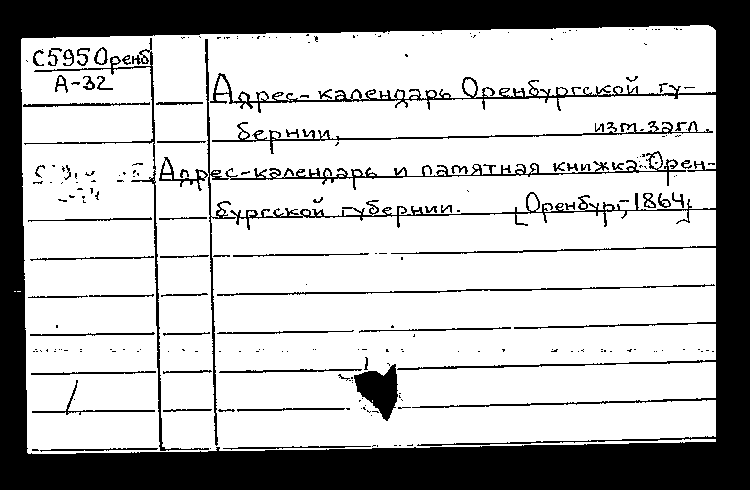 С595Оренб
А-32
Адрес-календарь Оренбургской гу-
бернии, изм.загл.
Адрес-календарь и памятная книжка Орен-
бургской губернии. [Оренбург, 1864]